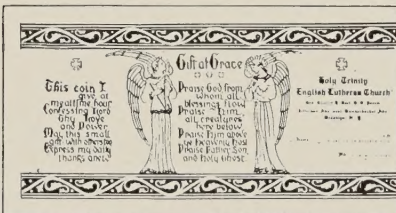 This coin I
give at
mealtime hour
Confessing Lord
Thy Love
and Power
May this small
gift with others too
Express my daily
thanks anew
Gift at Grace
Praise God from
Whom all
blessings flow
Praise Him
all creatures
here below
Praise Him above
ye Heavenly Host
Praise Father Son
and Holy Ghost
Holy Trinity
English Lutheran Church
Jefferson Ave. and
Brooklyn, N. Y.
Name